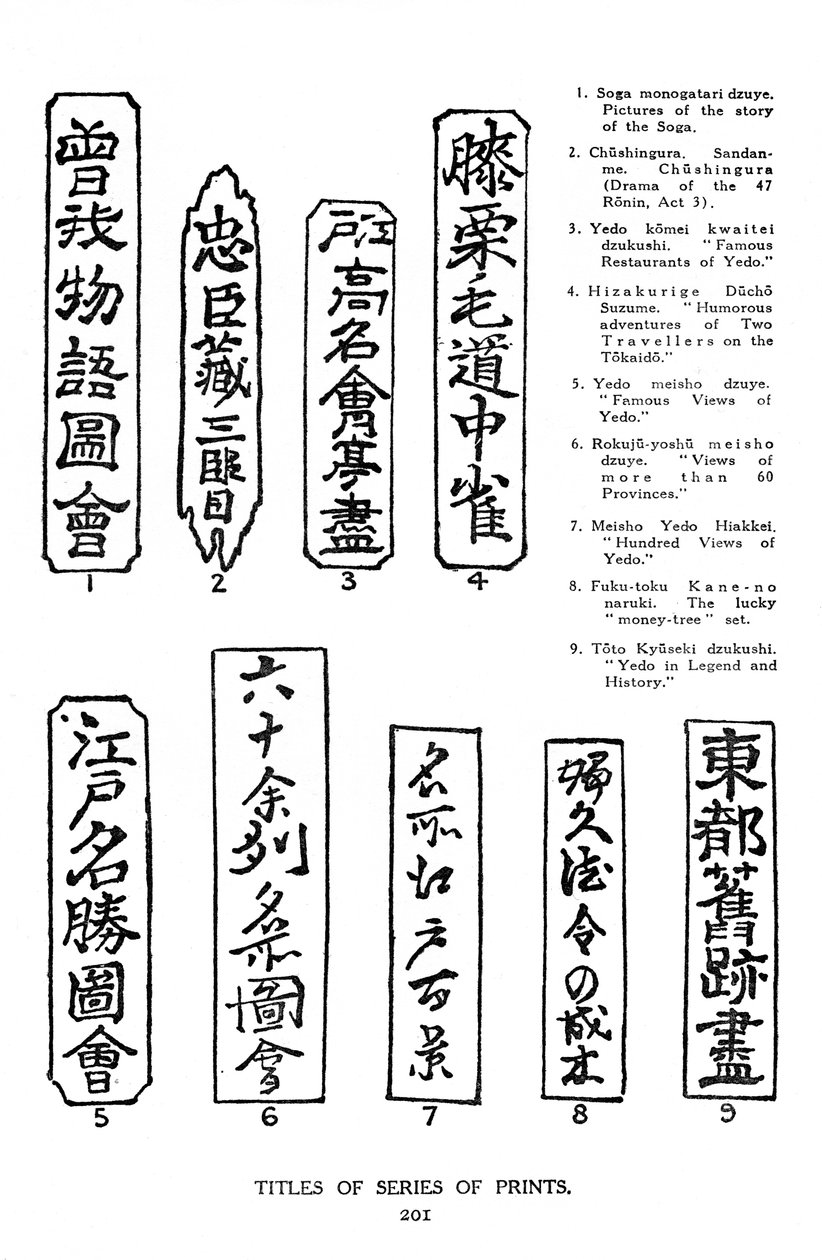 曾我物語圖會
1
忠臣藏三段目
2
江戸高名會亭盡
3
膝栗毛道中雀
4
1. Soga monogatari dzuye.
Pictures of the story
of the Soga.
2. Chūshingura. Sandan-
me. Chūshingura
(Drama of the 47
Rōnin, Act 3).
3. Yedo kōmei kwaitei
dzukushi. "Famous
Restaurants of Yedo."
4. Hizakurige Dūchō
Suzume. "Humorous
adventures of Two
Travellers on the
Tōkaidō."
5. Yedo meisho dzuye.
"Famous Views of
Yedo."
6. Rokujū-yoshū meisho
dzuye. "Views of
more than 60
Provinces."
7. Meisho Yedo Hiakkei.
"Hundred Views of
Yedo."
8. Fuku-toku Kane-no
naruki. The lucky
"money-tree" set.
9. Tōto Kyūseki dzukushi.
"Yedo in Legend and
History."
江戸名勝圖會
5
六十余州名所圖會
6
名所江戸百景
7
婦久徳金の成木
8
東都舊跡盡
9
TITLES OF SERIES OF PRINTS.
201